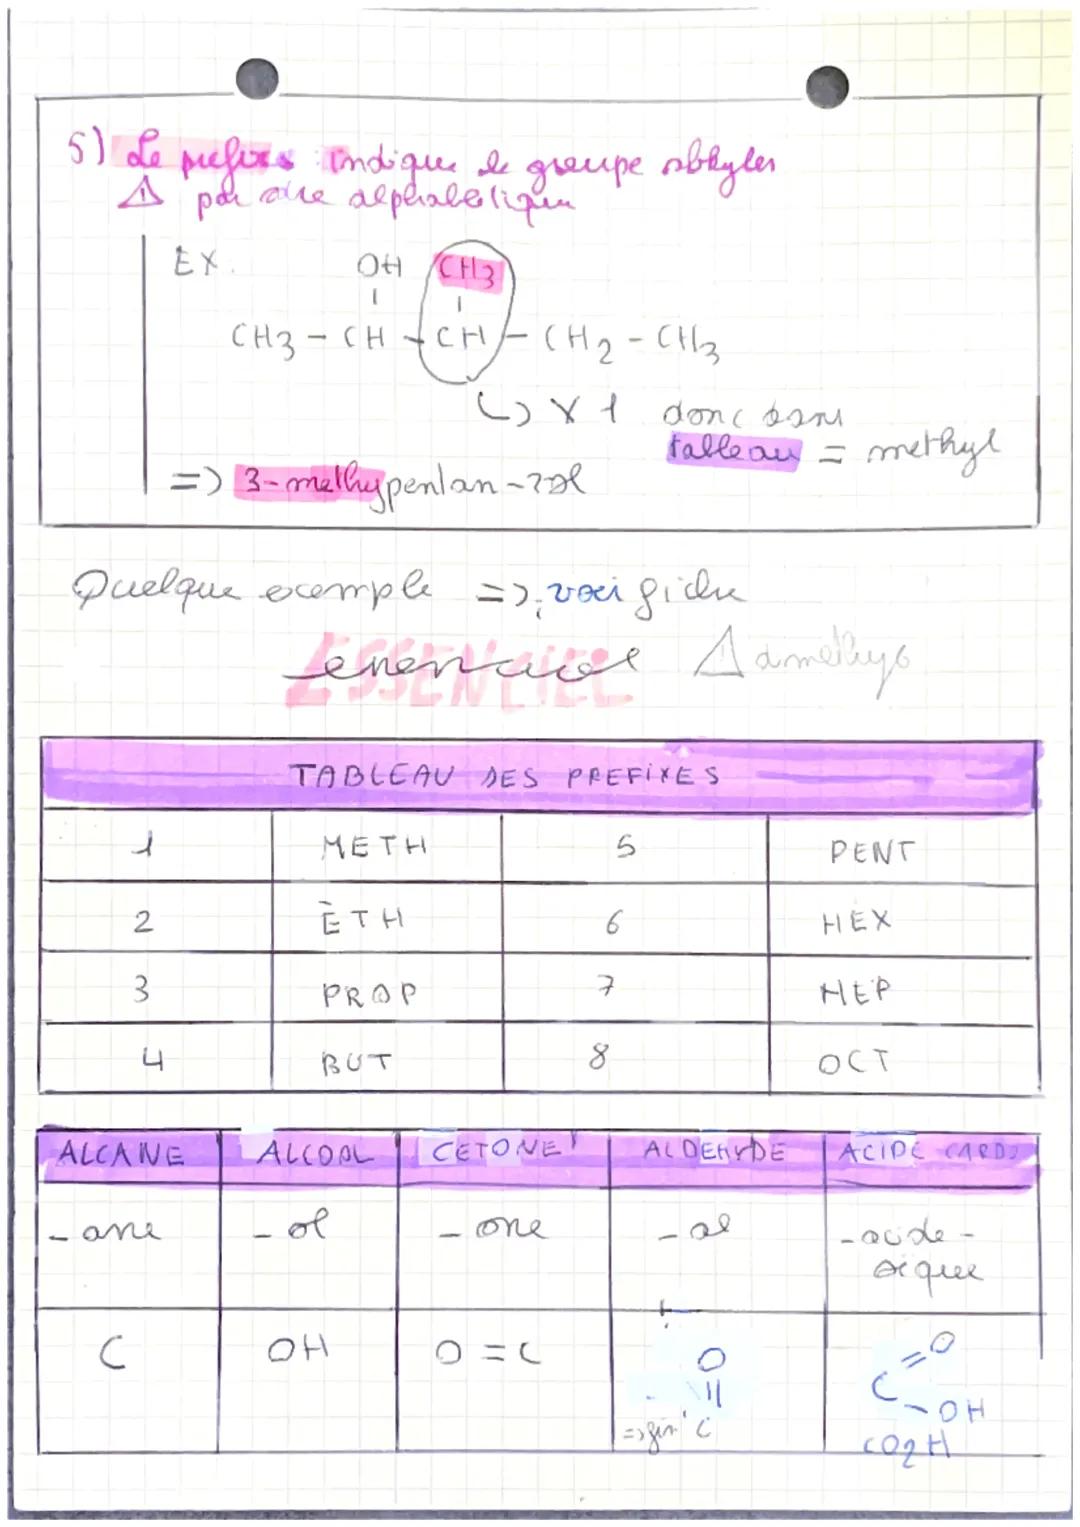 5) Le prefixs indique le groupe alkyles
⚠ par ordre alphabetique
EX.
OH CH3
CH3 - CH - CH - CH2 - CH3
↳ x 1 donc dans
tableau = methyl
=> 3-methypentan-2ol
Quelque exemple => voir fiche
ESSENCIEL
TABLEAU DES PREFIXES
1 METH 5 PENT
2 ÈTH 6 HEX
3 PROP 7 HEP
4 BUT 8 OCT
ALCANE ALCOOL CETONE ALDEHYDE ACIDE CARBO
- ane - ol - one - al - acide -
oïque
C OH O = C O
=> fin C
C = O
- OH
CO2H